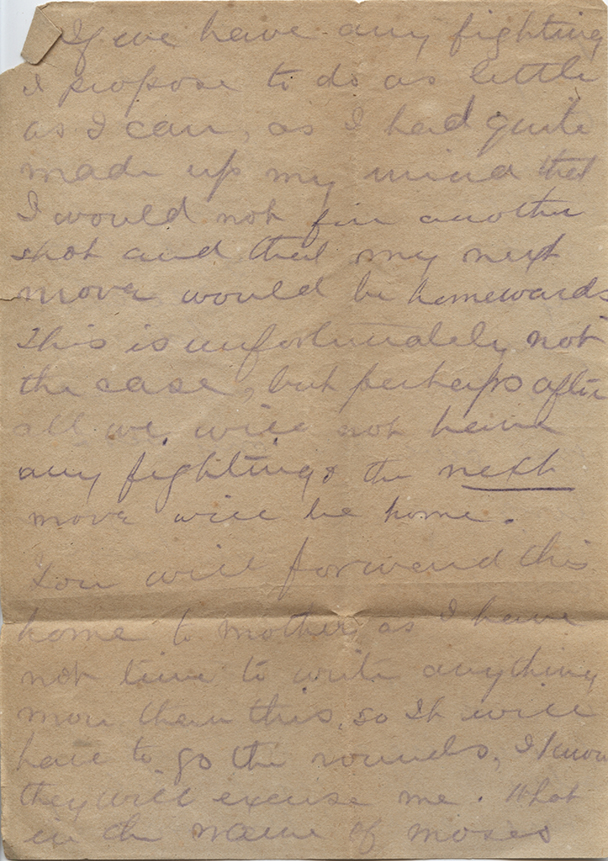 If we have any fighting
I propose to do as little
as I can, as I had quite
made up my mind that
I would not fire another
shot and that my next
move would be homewards
This is unfortunately not
the case, but perhaps after
all we will not have
any fighting & the next
move will be home.
You will forward this
home to mother, as I have
not time to write anything
more than this, so it will
have to go the rounds, I know
they will excuse me. What
in the name of moses